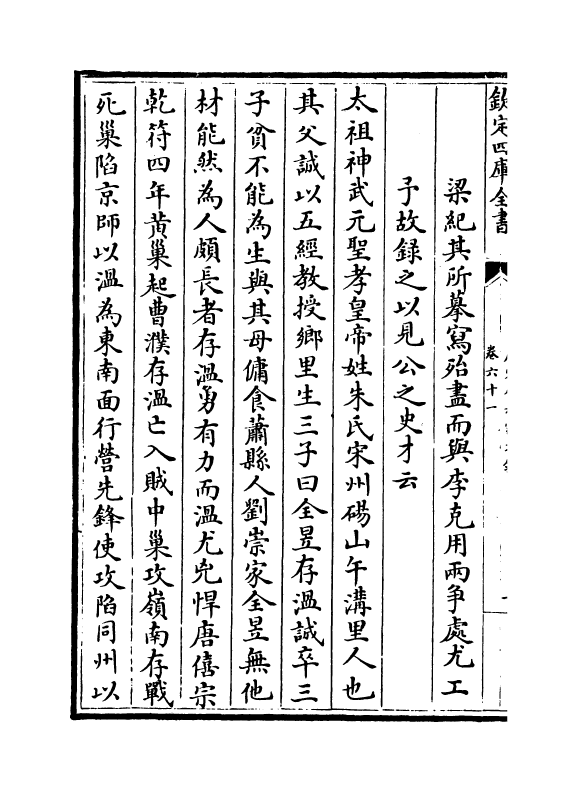 欽定四庫全書
卷六十一
梁紀其所摹寫殆盡而與李克用兩爭處尤工
予故録之以見公之史才云
太祖神武元聖孝皇帝姓朱氏宋州碭山午溝里人也
其父誠以五經教授鄉里生三子曰全昱存溫誠卒三
子貧不能為生與其母傭食蕭縣人劉崇家全昱無他
材能然為人頗長者存溫勇有力而溫尤兇悍唐僖宗
乾符四年黄巢起曹濮存溫亡入賊中巢攻嶺南存戰
死巢陷京師以溫為東南面行營先鋒使攻陷同州以